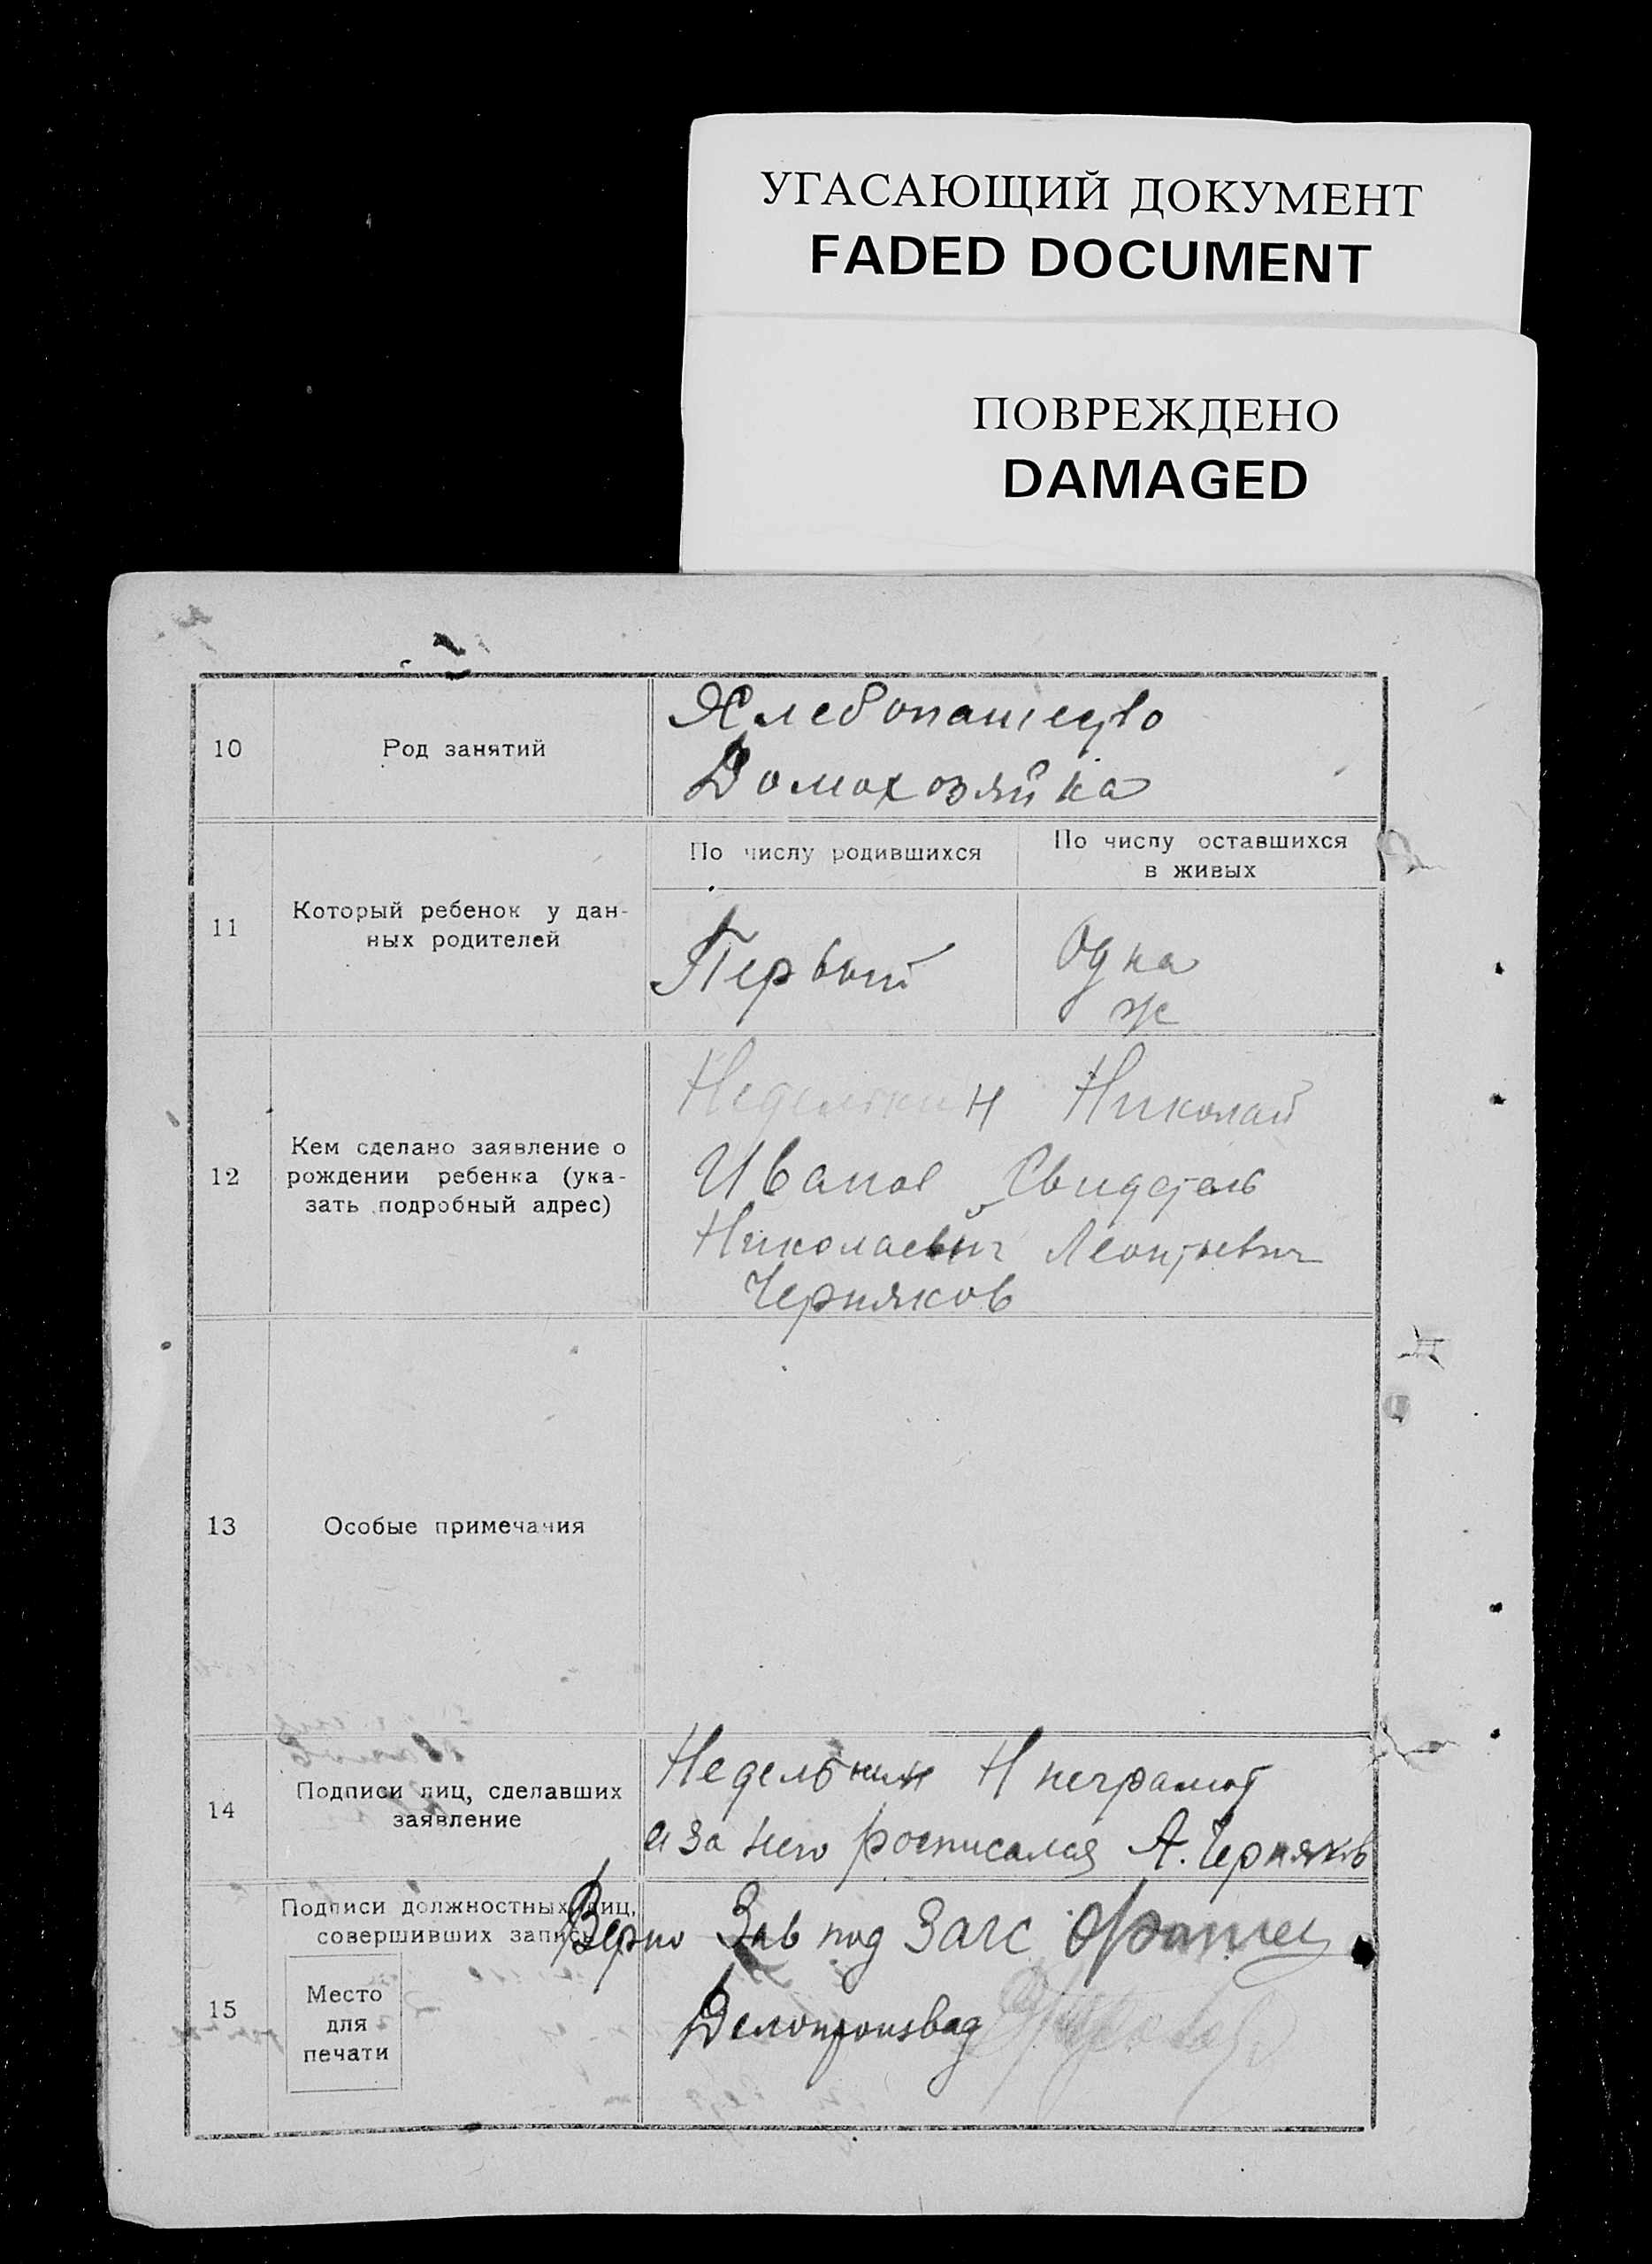 УГАСАЮЩИЙ ДОКУМЕНТ
FADED DOCUMENT
ПОВРЕЖДЕНО
DAMAGED
10
Род занятий
Хлебопашество
Домохозяйка
11
Который ребенок у дан-
ных родителей
По числу родившихся
По числу оставшихся
в живых
Первый
Одна
ж
12
Кем сделано заявление о
рождении ребенка (ука-
зать подробный адрес)
Неделькин Николай
Иванов Свидетель
Николаевич Леонтьевич
Черняков
13
Особые примечания
14
Подписи лиц, сделавших
заявление
Неделькин Н неграмот
а за него росписался А. Черняков
15
Подписи должностных лиц,
совершивших запись
Верно Зав под Загс
Место
для
печати
Делопроизвад